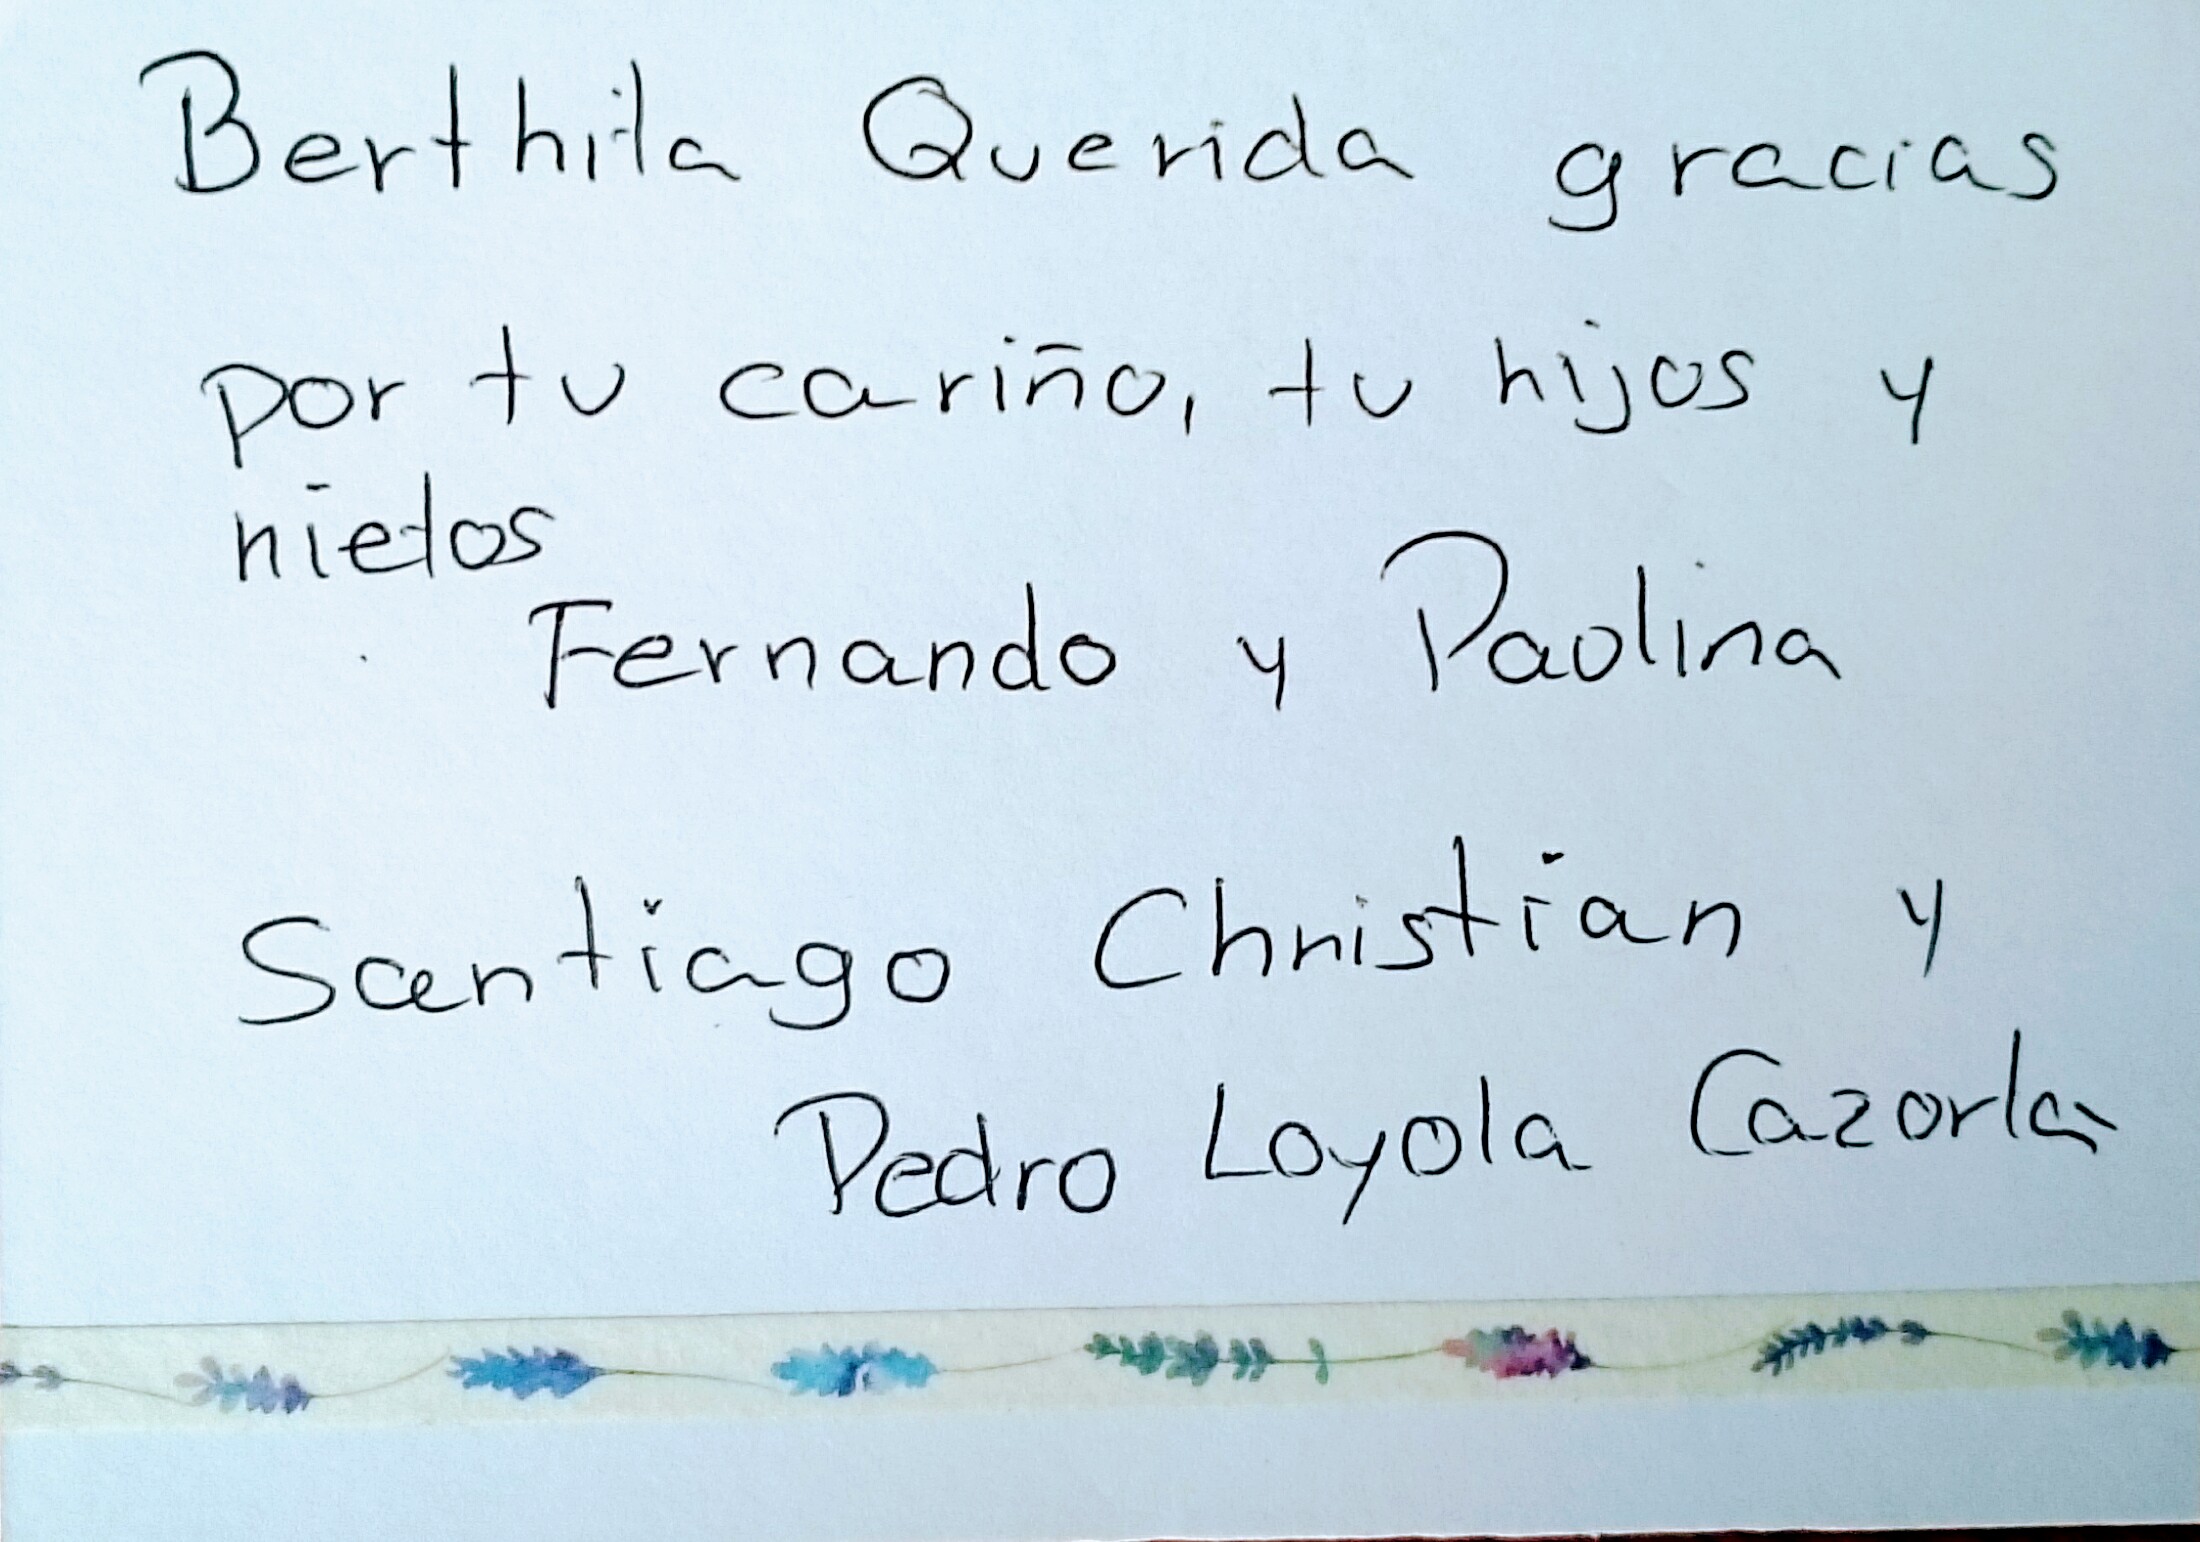 Berthila Querida gracias
por tu cariño, tu hijos y
nietos
Fernando y Paolina
Santiago Christian y
Pedro Loyola Cazorla